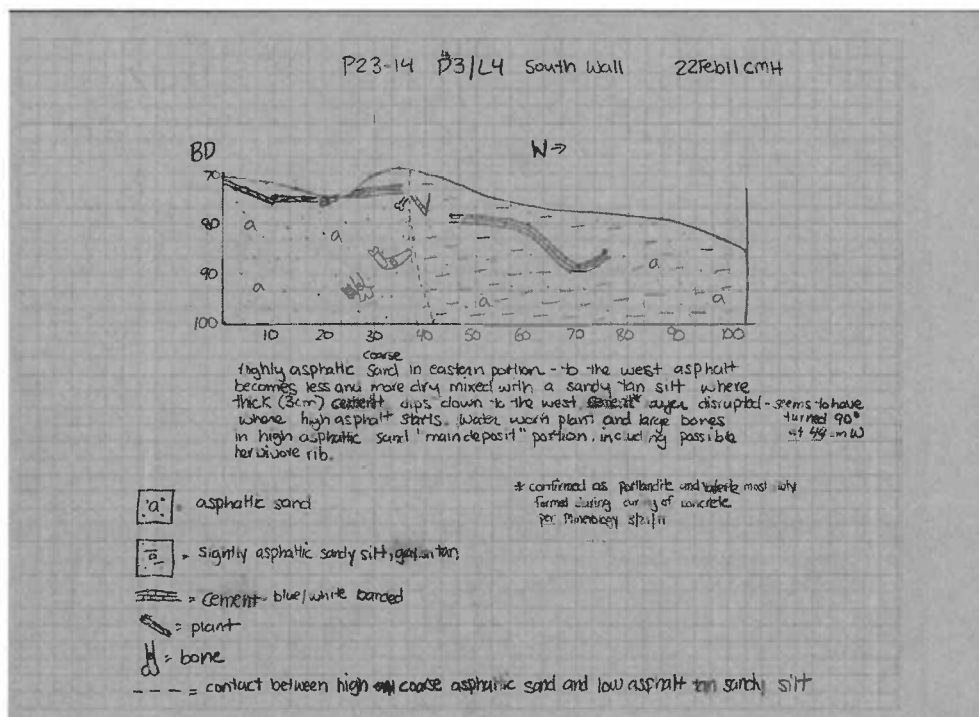 P23-14 D3/L4 South Wall 22Feb11 CMH
BD
W→
70
80
90
100
a
a
a
a
a
a
10 20 30 40 50 60 70 80 90 100
coarse
Highly asphaltic sand in eastern portion - to the west asphalt
becomes less and more dry mixed with a sandy tan silt where
thick (3cm) cement dips down to the west. layer disrupted - seems to have
where high asphalt starts. Water worn plant and large bones turned 90°
in high asphaltic sand "main deposit" portion, including possible at W
herbivore rib.
* confirmed as portlandite and most
formed during curing of concrete
per Minerology 3/21/11
"a" = asphaltic sand
a = slightly asphaltic sandy silt, tan
= cement - blue/white banded
= plant
= bone
--- = contact between high coarse asphaltic sand and low asphalt tan sandy silt